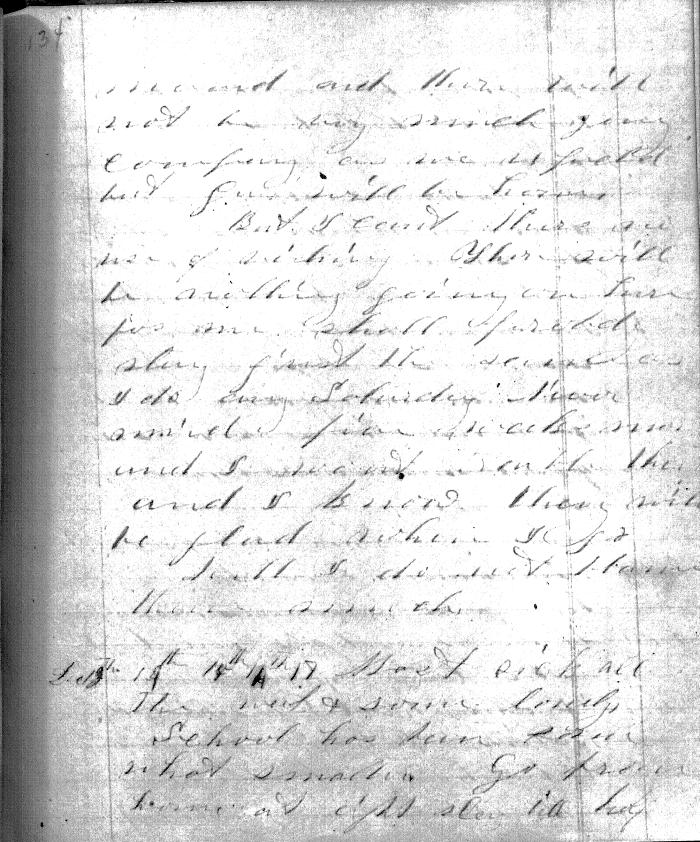 134
and there will
not be very much young
company as we expected
but few will be here
But I can't there is no
use of wishing. There will
be nothing going on here
for me shall probably
stay just the same as
I do any Saturday. Never
mind five weeks more
and I won't trouble them
and I know they will
be glad when I go
Well I do not blame
them much.
14th 15th 16th 17 Most sick all
the week & some lonely
School has been some
what smaller. Go from
home at eight stay till half